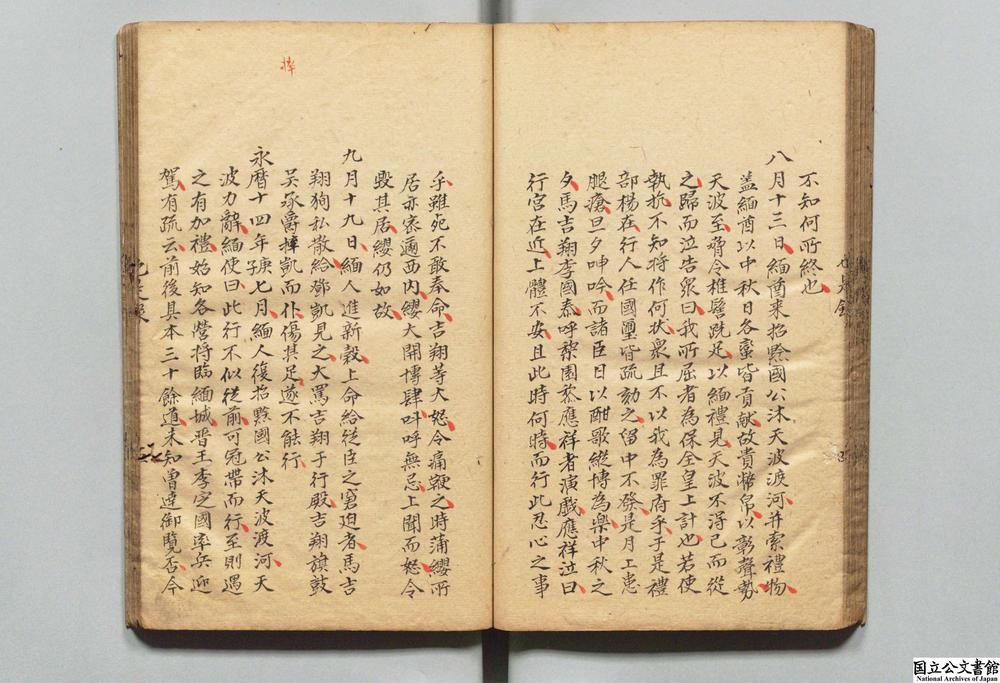 不知何所終也
八月十三日緬酋来招黔國公沐天波渡河并索禮物
盖緬酋以中秋日各蠻皆貢献故責幣帛以彰聲勢
天波至脅令椎髻跣足以緬禮見天波不得已而從
之歸而泣告衆曰我所屈者為保全皇上計也若使
執抗不知将作何状衆且不以我為罪府乎于是禮
部楊在行人任國璽皆疏劾之留中不發是月上患
腿瘡旦夕呻吟而諸臣日以酣歌縱博為樂中秋之
夕馬吉翔李國泰呼黎園黎應祥者演戲應祥泣曰
行宮在近上體不安且此時何時而行此忍心之事
乎雖死不敢奉命吉翔等大怒令痛鞭之時蒲纓所
居亦密邇西內纓大開博肆叫呼無忌上聞而怒令
毀其居纓仍如故
九月十九日緬人進新穀上命給從臣之窘迫者馬吉
翔狥私散給鄧凱見之大罵吉翔于行殿吉翔旗鼓
吳承爵摔凱而仆傷其足遂不能行
永曆十四年庚子七月緬人復招黔國公沐天波渡河天
波力辭緬使曰此行不似從前可冠帶而行至則遇
之有加禮始知各營将臨緬城晋王李定國率兵迎
駕有疏云前後具本三十餘道未知曽達御覽否今
摔
国立公文書館
National Archives of Japan